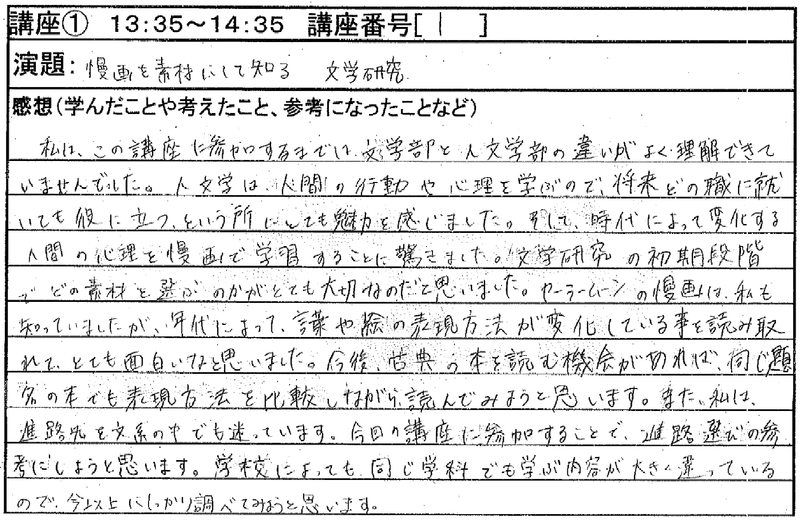 講座① 13:35～14:35 講座番号[ 1 ]
演題: 漫画を素材にして知る 文学研究
感想(学んだことや考えたこと、参考になったことなど)
私は、この講座に参加するまでは、文学部と人文学部の違いがよく理解できて
いませんでした。人文学は人間の行動や心理を学ぶので、将来どの職に就
いても役に立つ、という所にとても魅力を感じました。そして、時代によって変化する
人間の心理を漫画で学習することに驚きました。文学研究の初期段階
でどの素材を選ぶのかがとても大切なのだと思いました。セーラームーンの漫画は、私も
知っていましたが、年代によって、言葉や絵の表現方法が変化している事を読み取
れて、とても面白いなと思いました。今後、古典の本を読む機会があれば、同じ題
名の本でも表現方法を比較しながら、読んでみようと思います。また、私は、
進路先を文系の中でも迷っています。今回の講座に参加することで、進路選びの参
考にしようと思います。学校によっても、同じ学科でも学ぶ内容が大きく違っている
ので、今以上にしっかり調べてみようと思います。